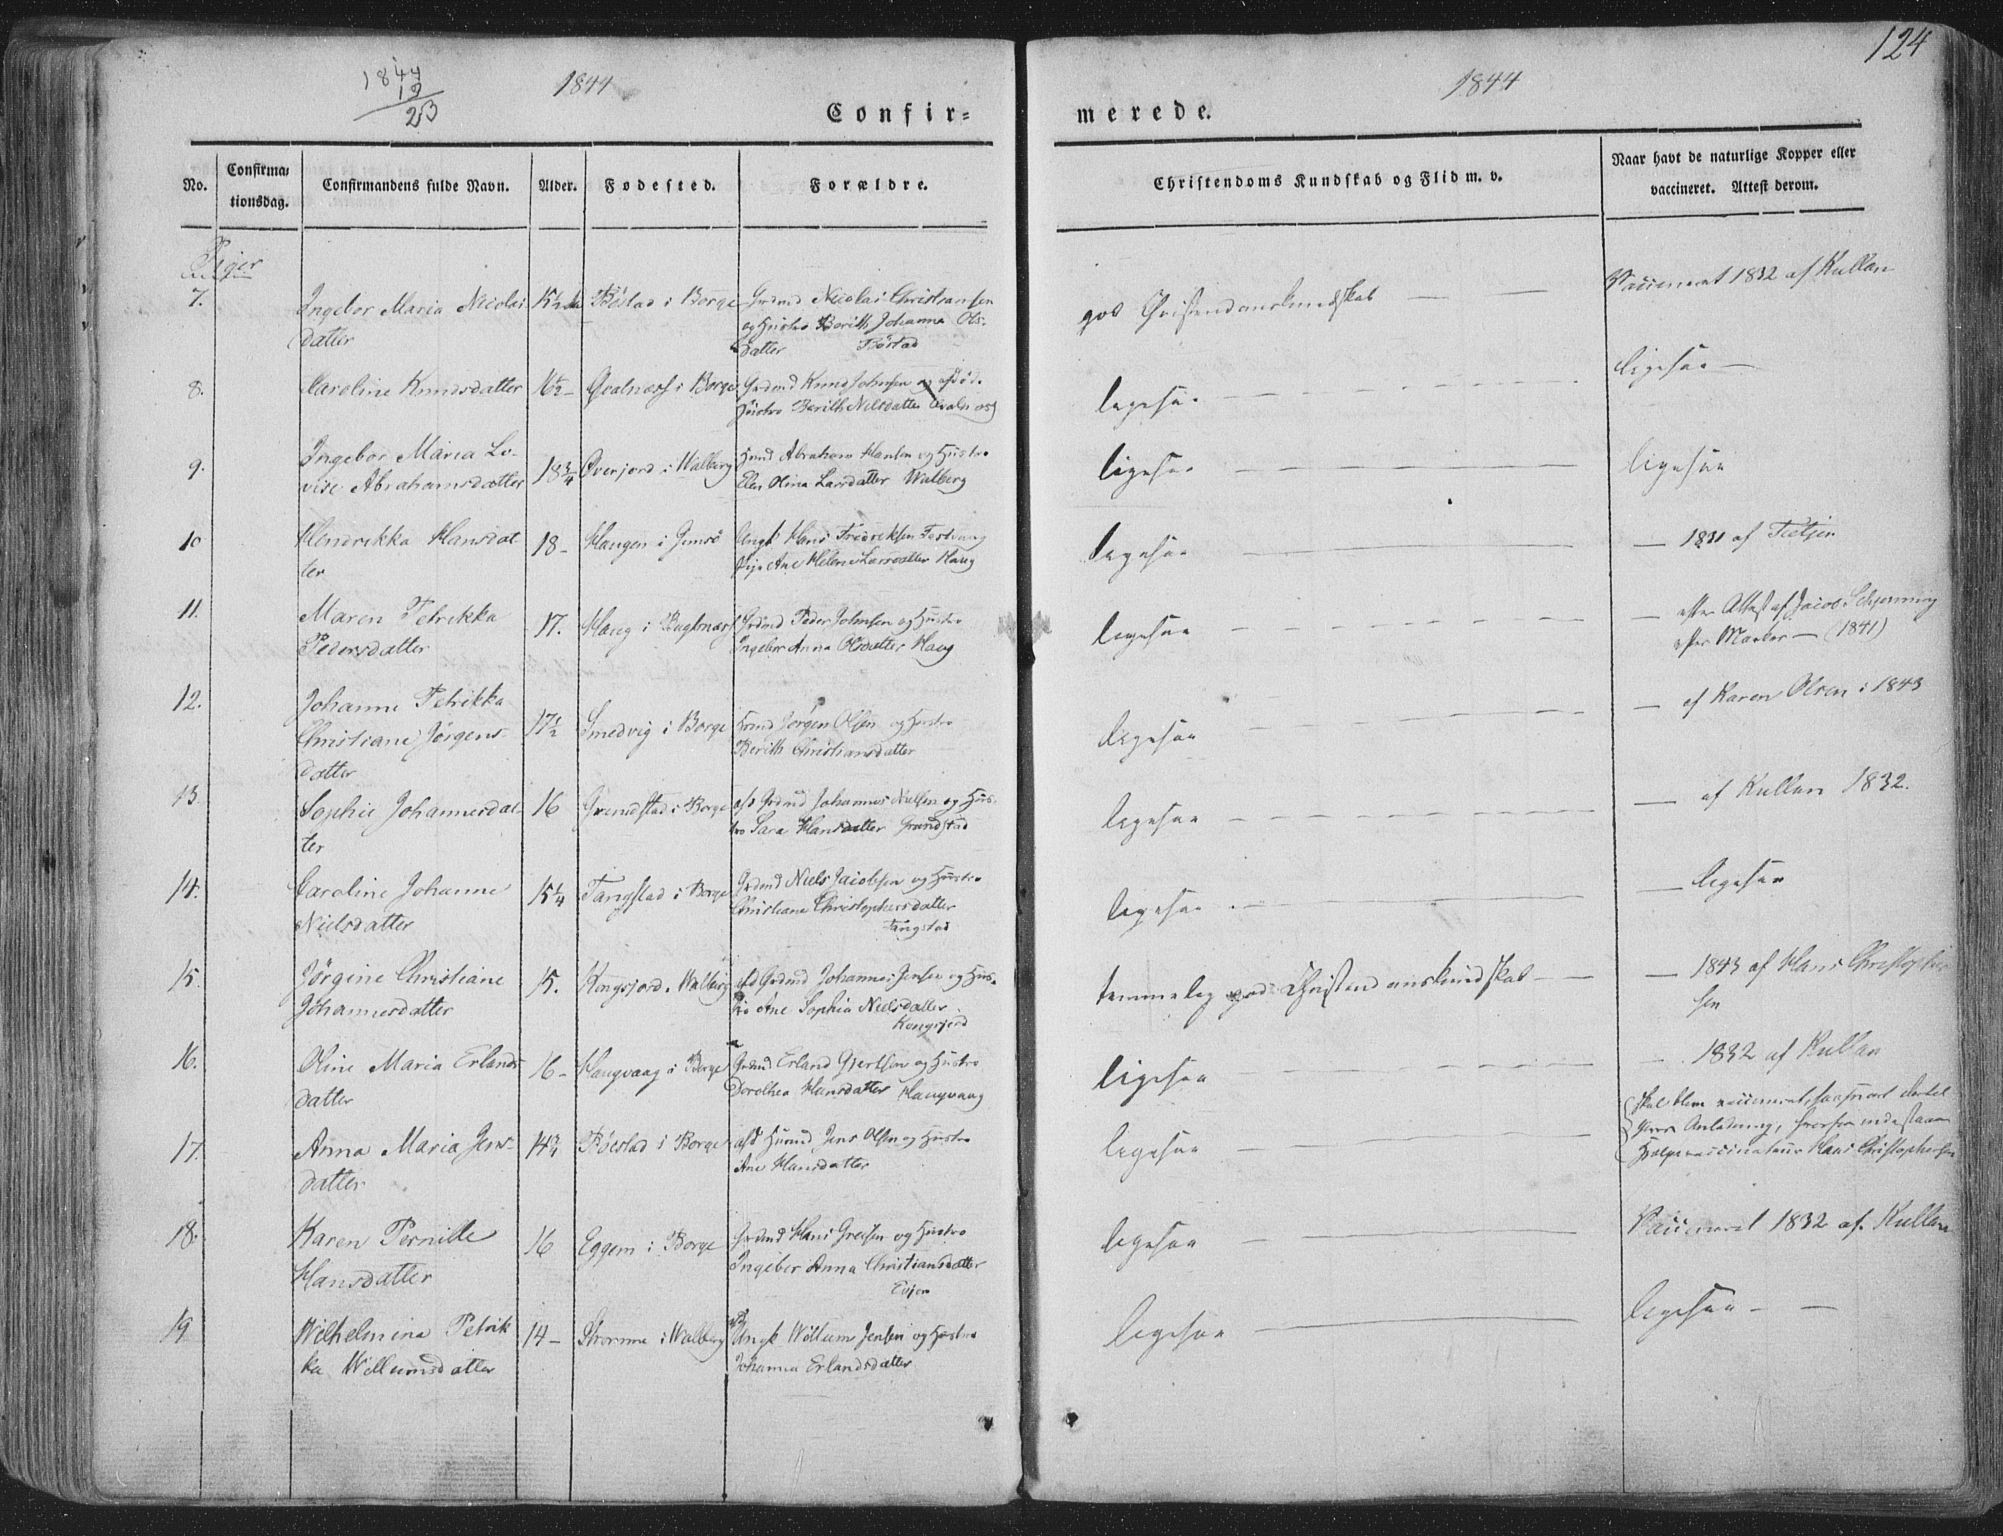 124
1844
19
23
1844
1844
Confir=
merede.
No.
Confirma=
tionsdag.
Confirmandens fulde Navn.
Alder.
Fødested.
Forældre.
Christendoms Kundskab og Flid m. v.
Naar havt de naturlige Kopper eller
vaccineret. Attest derom.
Piger
7.
Ingebor Maria Nicolai
datter
15½
Bøstad i Borge
Grdmd Nicolai Christiansen
og Hustro Berith Johanna Ols-
datter Bøstad
god Christendomskundskab
Vaccineret 1832 af Kullan
8.
Caroline Knudsdatter
16½
Qvalnæss i Borge
Grdmd Knud Johnsen og afdød
Hustro Berith Nilsdatter
ligesaa
ligesaa
9.
Ingebor Maria Lo-
vise Abrahamsdatter
18¾
Øverjord i Walberg
Hmd Abraham Hansen og Hustro
Elen Olina Larsdatter Walberg
ligesaa
ligesaa
10
Hendrikka Hansdat
ter
18
Haugen i Gimsø
Ungk Hans Fredriksen Festvaag
Pige Ane Helene Larsdatter Haug
ligesaa
1831 af Tietjen
11.
Maren Petrikka
Pedersdatter
17.
Haug i
Grdmd Peder Johnsen og Hustro
Ingebor Anna Olsdatter Haug
ligesaa
efter Attest af Jacob Schjerning
efter Mærker (1841)
12.
Johanne Petrikka
Christiane Jørgens-
datter
17½
Smedvig i Borge
Hmd Jørgen Olsen og Hustro
Berith Christiansdatter
ligesaa
af Karen Olsen i 1843
13.
Sophie Johannesdat-
ter
16
Grundstad i Borge
afd Grdmd Johannes Nielsen og Hus-
tro Sara Hansdatter Grundstad
ligesaa
af Kullan 1832.
14.
Caroline Johanne
Nielsdatter
15¼
Tangstad i Borge
Grdmd Niels Jacobsen og Hustro
Christiane Christophersdatter
Tangstad
ligesaa
ligesaa
15.
Jørgine Christiane
Johannesdatter
15.
Kongsjord i Walberg
afd Grdmd Johannes Jensen og Hus-
tro Ane Sophia Nielsdatter
Kongsjord
temmelig god Christendomskundskab
1843 af Hans Christopher
sen
16.
Oline Maria Erlands
datter
16
Haugvaag i Borge
Grdmd Erland Gjertsen og Hustro
Dorothea Hansdatter Haugvaag
ligesaa
1832 af Kullan
17.
Anna Maria Jens-
datter
14¾
Bøstad i Borge
afd Huusmd Jens Olsen og Hustro
Ane Hansdatter
ligesaa
skal blive vaccineret, saasnart dertil
gives Anledning, hvorfor indestaaer
Hjelpevaccinateur Hans Christophersen
18.
Karen Pernille
Hansdatter
16
Eggem i Borge
Grdmd Hans Gregsen og Hustro
Ingebor Anna Christiansdatter
ligesaa
Vaccineret 1832 af Kullan
19
Wilhelmina Petrik
ka Willumsdatter
14
Strømme i Walberg
Ungk Willum Jensen og Hustro
Johanna Erlandsdatter
ligesaa
ligesaa